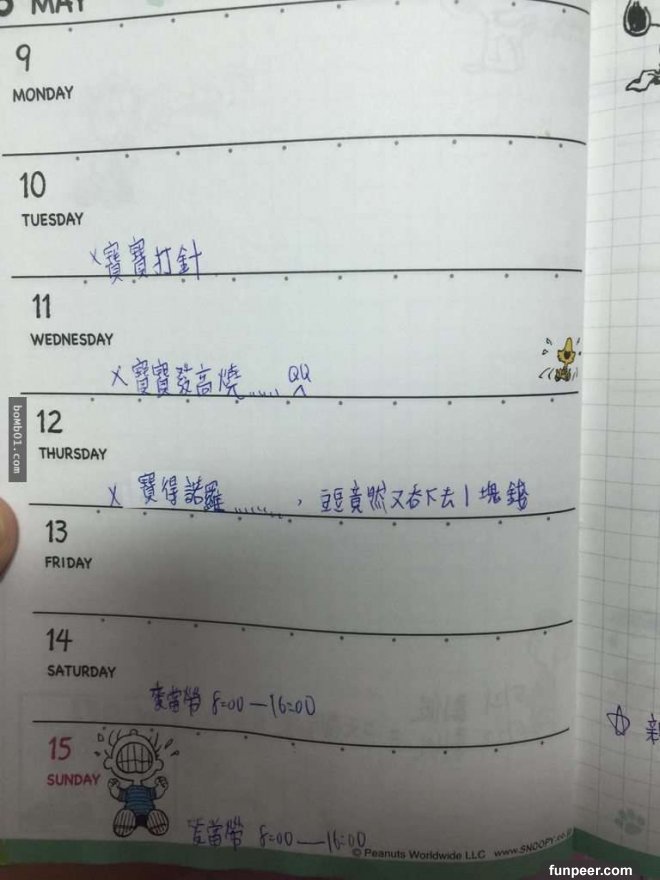 MAY
9
MONDAY
10
TUESDAY
x寶寶打針
11
WEDNESDAY
x 寶寶發高燒...... QQ
12
THURSDAY
x 寶得諾羅........, 豆豆竟然又吞下去1塊錢
13
FRIDAY
14
SATURDAY
麥當勞 8:00 — 16:00
15
SUNDAY
麥當勞 8:00 — 16:00
© Peanuts Worldwide LLC www.SNOOPY.co
新
boMb01.com
funpeer.com